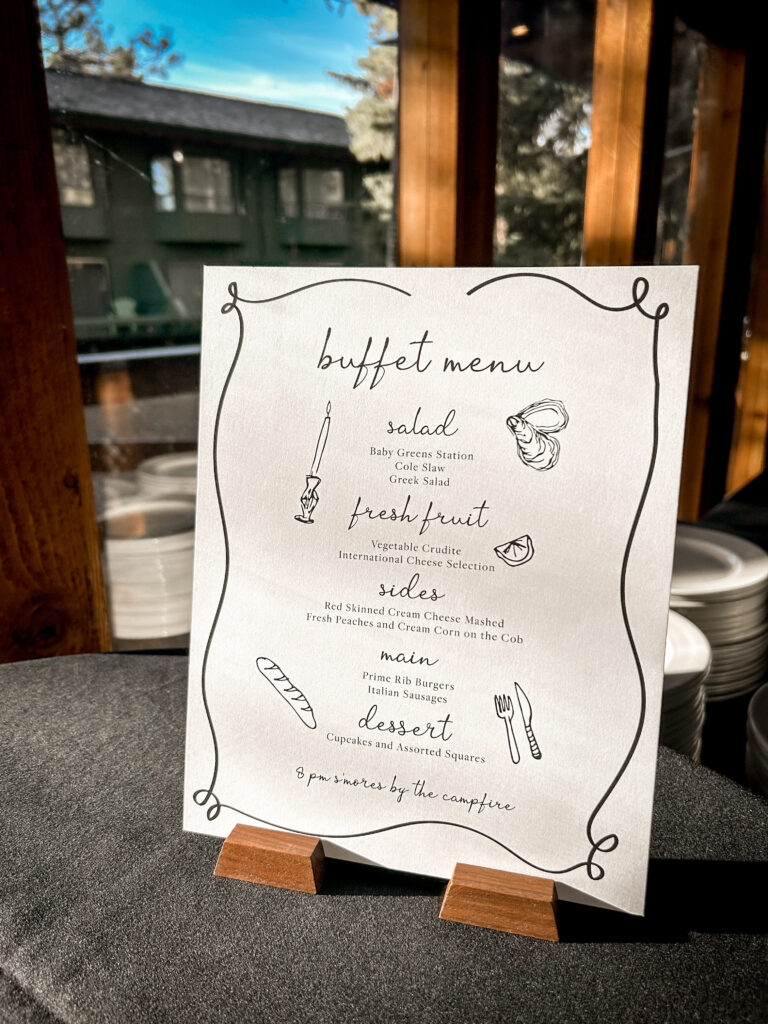 buffet menu
salad
Baby Greens Station
Cole Slaw
Greek Salad
fresh fruit
Vegetable Crudite
International Cheese Selection
sides
Red Skinned Cream Cheese Mashed
Fresh Peaches and Cream Corn on the Cob
main
Prime Rib Burgers
Italian Sausages
dessert
Cupcakes and Assorted Squares
8 pm s'mores by the campfire